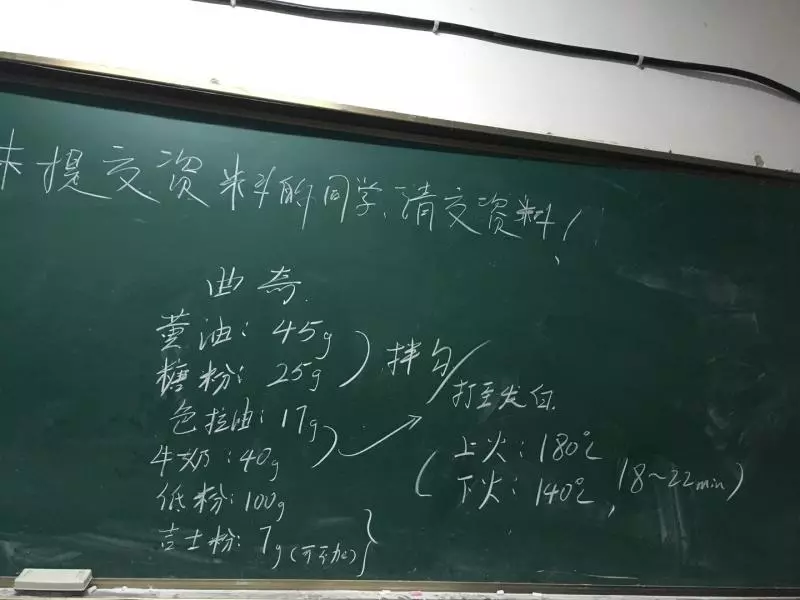 未提交资料的同学、请交资料!
曲奇
黄油: 45g
糖粉: 25g
拌匀/打至发白
色拉油: 17g
牛奶: 40g
低粉: 100g
吉士粉: 7g(可不加)
(上火: 180℃
下火: 140℃, 18~22min)